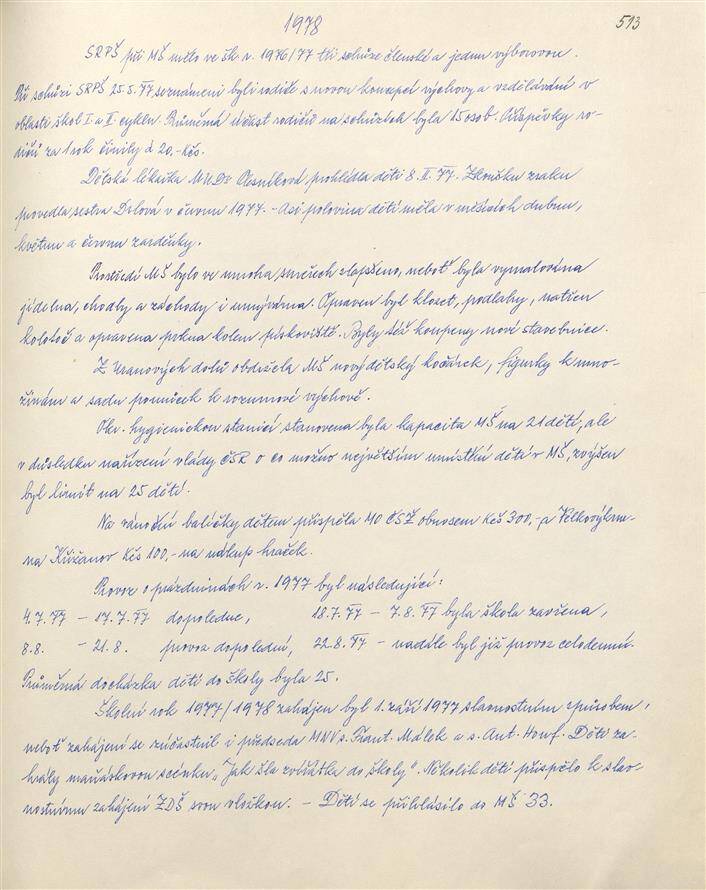 1978
513
SRPŠ při MŠ mělo ve šk. r. 1976/77 tři schůze členské a jednu výborovou.
Při schůzi SRPŠ 25.5.77 seznámeni byli rodiče s novou koncepcí výchovy a vzdělávání v
oblasti škol I a II cyklu. Průměrná účast rodičů na schůzích byla 15 osob. Příspěvky ro-
dičů za 1 rok činily á 20,-Kčs.
Dětská lékařka MUDr prohlédla děti 8.II.77. Zkoušku zraku
provedla sestra v červnu 1977. - Asi polovina dětí měla v měsících dubnu,
květnu a červnu zarděnky.
Prostředí MŠ bylo ve mnoha směrech zlepšeno, neboť byla vymalována
jídelna, chodby a záchody i umývárna. Opraven byl klozet, podlahy, natřen
kolotoč a opravena prkna kolem pískoviště. Byly též koupeny nové stavebnice.
Z Uranových dolů obdržela MŠ nový dětský kočárek, figurky k mno-
žinám a sadu pomůcek k rozumové výchově.
Okr. hygienickou stanicí stanovena byla kapacita MŠ na 21 dětí, ale
v důsledku nařízení vlády ČSR o co možno největším umístění dětí v MŠ, zvýšen
byl limit na 25 dětí.
Na vánoční balíčky dětem přispěla MO ČSŽ obnosem Kčs 300,- a Velkovýkrm-
na Křižanov Kčs 100,- na nákup hraček.
Provoz o prázdninách r. 1977 byl následující:
4.7.77 - 17.7.77 dopoledne, 18.7.77 - 7.8.77 byla škola zavřena,
8.8. - 21.8. provoz dopolední, 22.8.77 - nadále byl již provoz celodenní.
Průměrná docházka dětí do školy byla 25.
Školní rok 1977/1978 zahájen byl 1. září 1977 slavnostním způsobem,
neboť zahájení se zúčastnil i předseda MNV s. Frant. Málek a s. Ant. Houf. Děti za-
hrály maňáskovou scénku „Jak šla zvířátka do školy". Několik dětí přispělo k slav-
nostnímu zahájení ZDŠ svou vložkou. - Dětí se přihlásilo do MŠ 33.